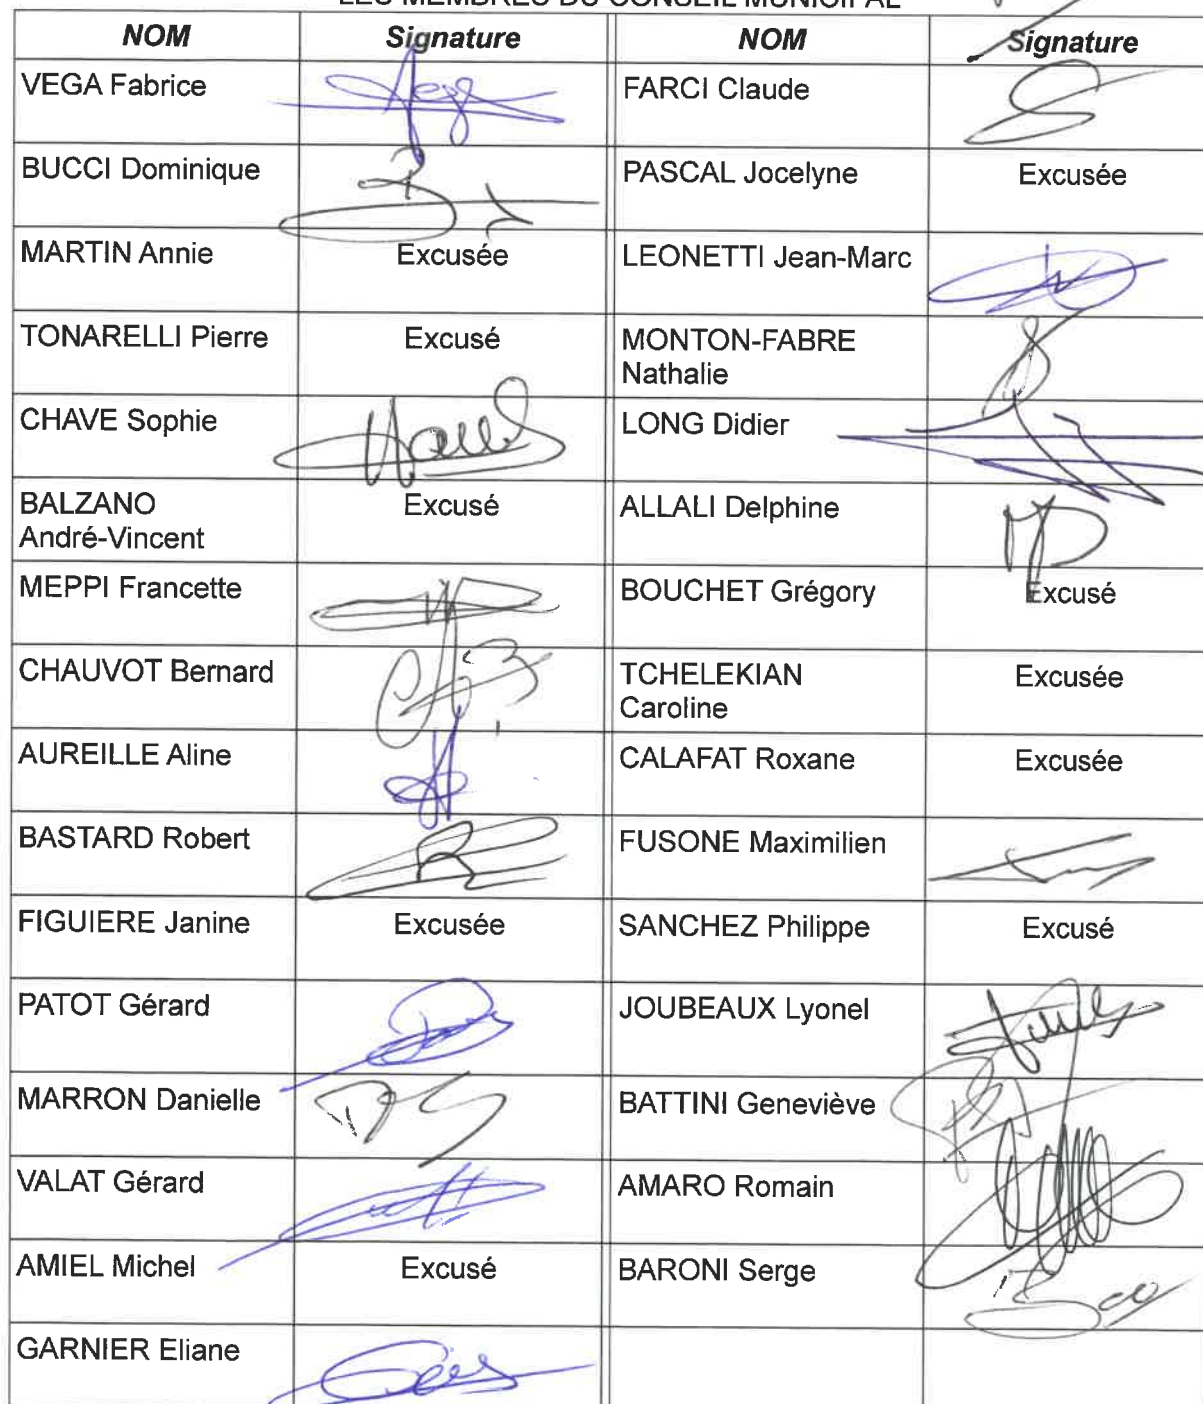 LES MEMBRES DU CONSEIL MUNICIPAL
NOM Signature NOM Signature
VEGA Fabrice FARCI Claude
BUCCI Dominique PASCAL Jocelyne Excusée
MARTIN Annie Excusée LEONETTI Jean-Marc
TONARELLI Pierre Excusé MONTON-FABRE
Nathalie
CHAVE Sophie LONG Didier
BALZANO Excusé ALLALI Delphine
André-Vincent
MEPPI Francette BOUCHET Grégory Excusé
CHAUVOT Bernard TCHELEKIAN Excusée
Caroline
AUREILLE Aline CALAFAT Roxane Excusée
BASTARD Robert FUSONE Maximilien
FIGUIERE Janine Excusée SANCHEZ Philippe Excusé
PATOT Gérard JOUBEAUX Lyonel
MARRON Danielle BATTINI Geneviève
VALAT Gérard AMARO Romain
AMIEL Michel Excusé BARONI Serge
GARNIER Eliane